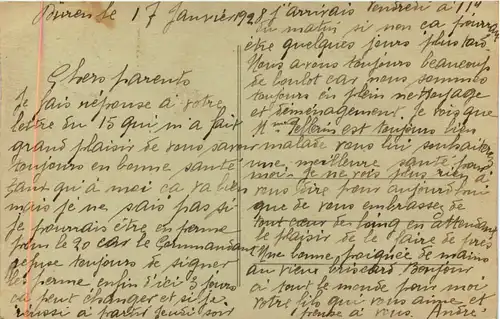 le 17 Janvier 1928
Chers parents
Je fais réponse à votre
lettre du 15 qui m'a fait
grand plaisir de vous savoir
toujours en bonne santé
tant qu'à moi ca va bien
mais je ne sais pas si
je pourrais être en perme
pour le 20 car le Commandant
refuse toujours de signer
les perme enfin d'ici 3 jours
ca peut changer et si je
réussi à partir jeudi soir
j'arrivais vendredi à 11H
du matin si non ca pourra
être quelques jours plus tard
Nous avons toujours beaucoup
de boulot car nous sommes
toujours en plein nettoyage
et déménagement. Je vois que
est toujours bien
malade vous lui souhaiterez
une meilleure santé pour
moi. Je ne vois plus rien à
vous dire pour aujourd'hui
que de vous embrasser de
tout cœur de loing en attendant
le plaisir de le faire de près
Une bonne poignée de mains
au vieux briscard. Bonjour
à tout le monde pour moi
votre fils qui vous aime et
pense à vous. André